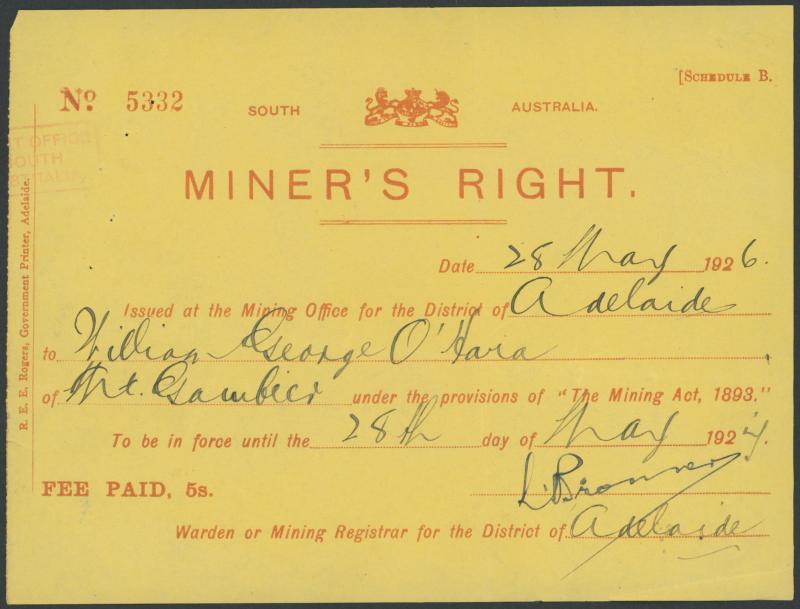 [SCHEDULE B.
No. 5332
SOUTH AUSTRALIA.
T OFFICE
SOUTH
MINER'S RIGHT.
Date 28 May 1926.
Issued at the Mining Office for the District of Adelaide
to William George O'Hara
of Mt. Gambier under the provisions of "The Mining Act, 1893,"
To be in force until the 28th day of May 1927.
FEE PAID, 5s.
Warden or Mining Registrar for the District of Adelaide
R. E. E. Rogers, Government Printer, Adelaide.